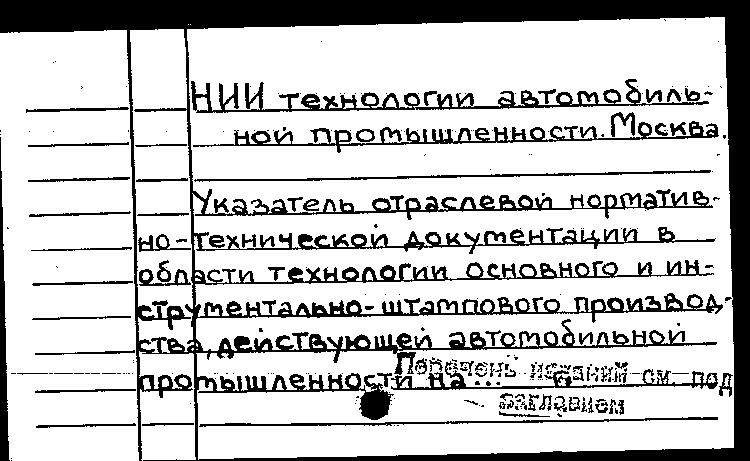 НИИ технологии автомобиль-
ной промышленности. Москва.
Указатель отраслевой норматив-
но-технической документации в
области технологии основного и ин-
струментально-штампового производ-
ства, действующей автомобильной
промышленности на... Перечень изданий см. под
заглавием